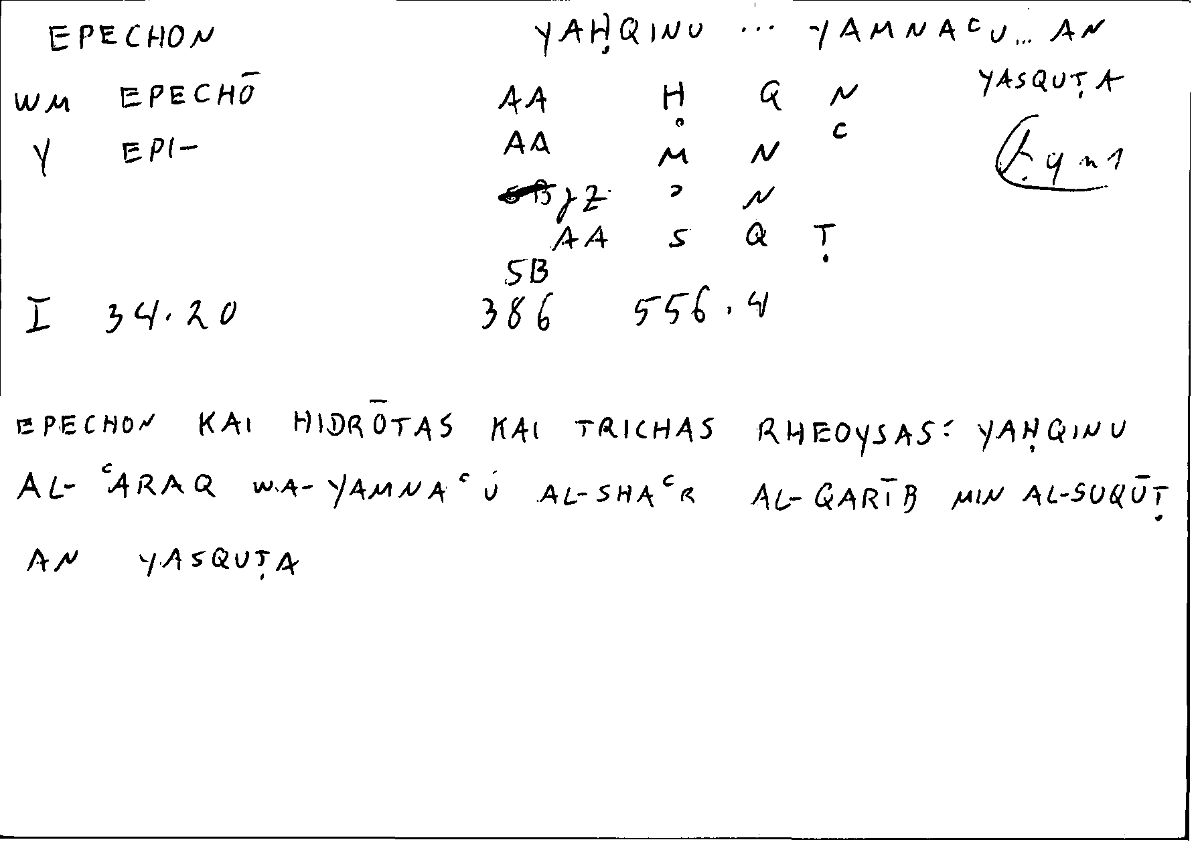 EPECHON YAḤQINU ... YAMNAᶜU... AN
YASQUṬA
WM EPECHŌ AA Ḥ Q N
Y EPI- AA M N ᶜ
JZ ʾ N
AA S Q Ṭ
SB
I 34.20 386 556.4
EPECHON KAI HIDRŌTAS KAI TRICHAS RHEOYSAS: YAḤQINU
AL-ᶜARAQ WA-YAMNAᶜU AL-SHAᶜR AL-QARĪB MIN AL-SUQŪṬ
AN YASQUṬA